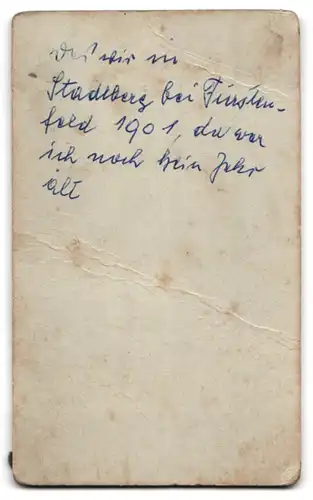 Das wir in
Stadlberg bei Fürsten-
feld 1901, da war
ich noch kein Jahr
alt